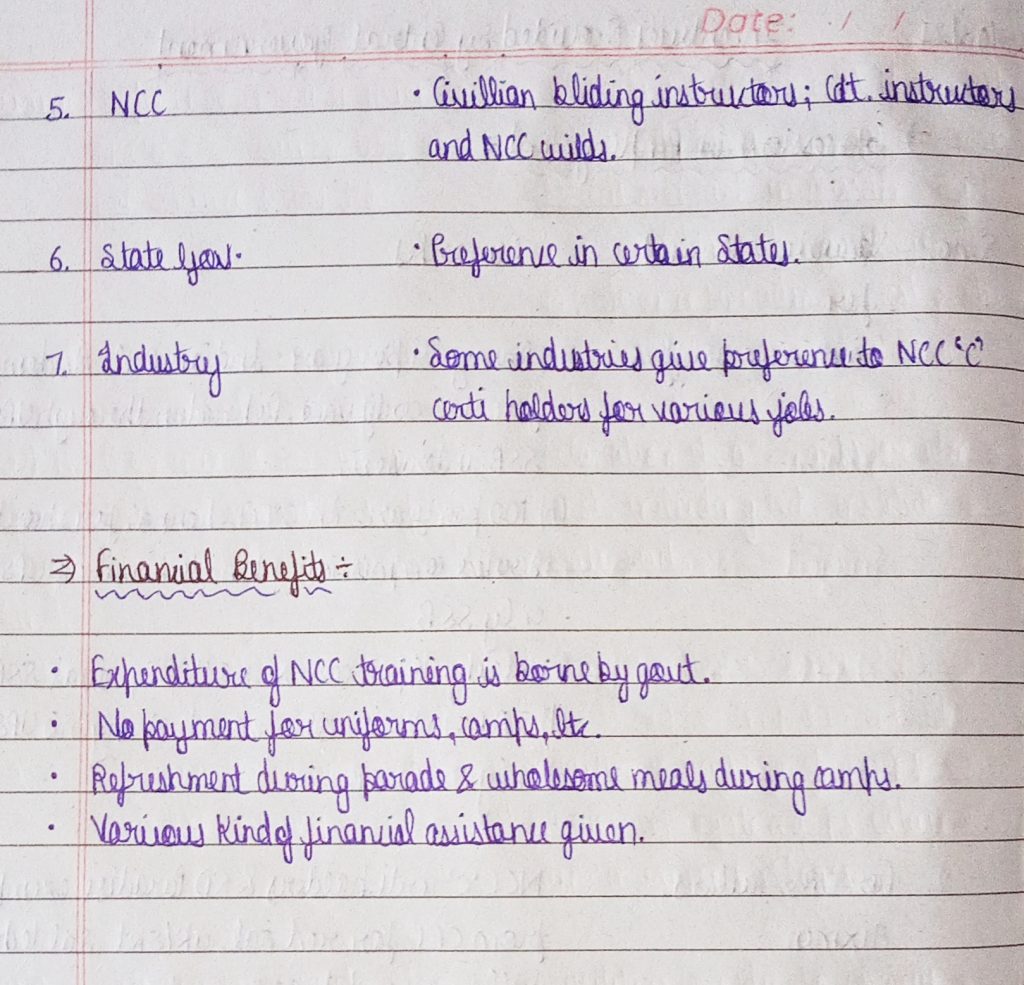 Date: / /
5. NCC • Civillian bliding instructors; Cdt. instructors
and NCC wilds.
6. State Gov. • Preference in certain States.
7. Industry • Some industries give preference to NCC 'C'
certi holders for various jobs.
⇒ Financial Benefits ÷
• Expenditure of NCC training is borne by govt.
• No payment for uniforms, camps, etc.
• Refreshment during parade & wholesome meals during camps.
• Various kind of financial assistance given.